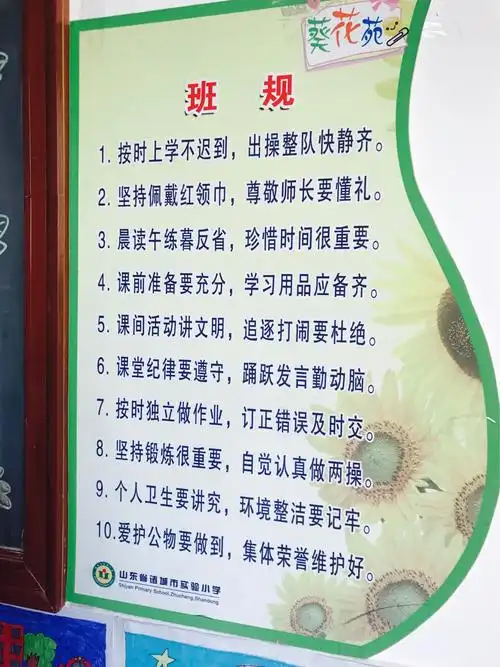 葵花苑
班 规
1. 按时上学不迟到，出操整队快静齐。
2. 坚持佩戴红领巾，尊敬师长要懂礼。
3. 晨读午练暮反省，珍惜时间很重要。
4. 课前准备要充分，学习用品应备齐。
5. 课间活动讲文明，追逐打闹要杜绝。
6. 课堂纪律要遵守，踊跃发言勤动脑。
7. 按时独立做作业，订正错误及时交。
8. 坚持锻炼很重要，自觉认真做两操。
9. 个人卫生要讲究，环境整洁要记牢。
10. 爱护公物要做到，集体荣誉维护好。
山东省诸城市实验小学
Shiyan Primary School, Zhucheng, Shandong